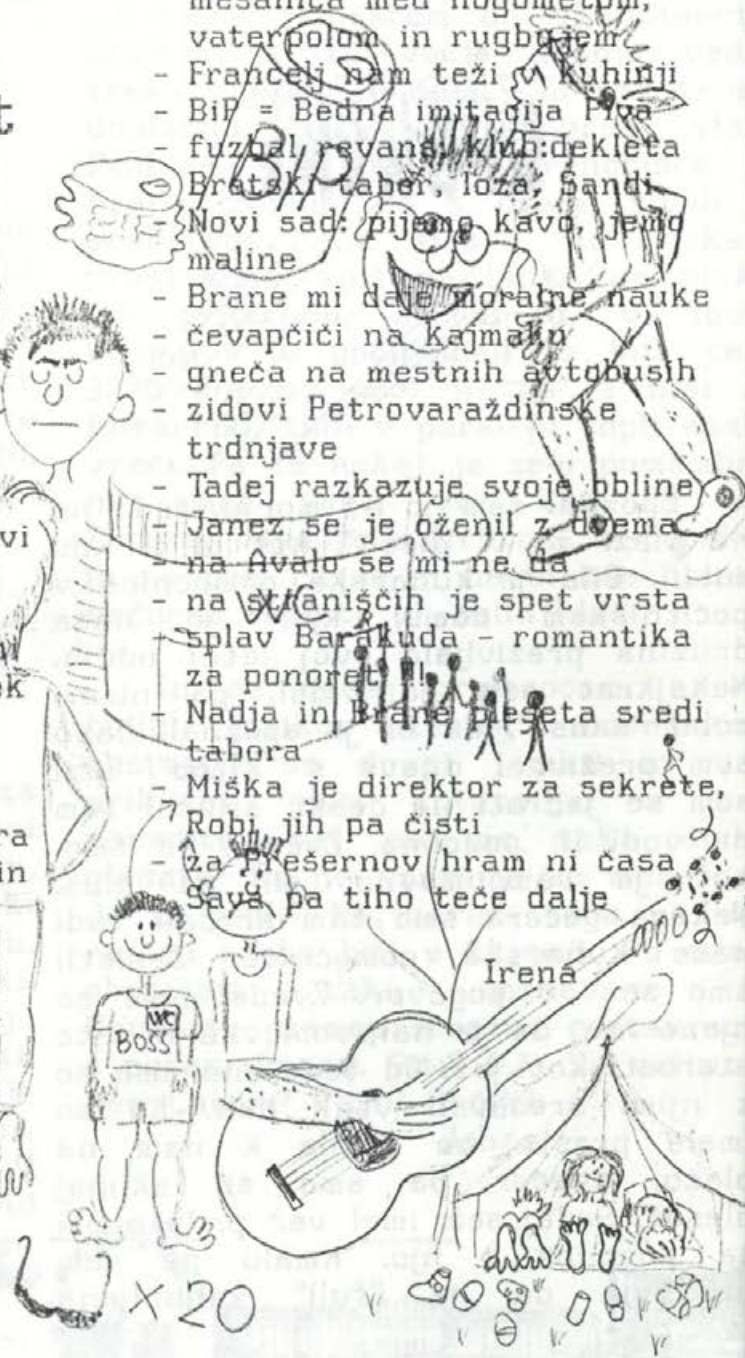 t
mešanica med nogometom,
vaterpolom in rugbyjem
- Francelj nam teži v kuhinji
- BiP = Bedna imitacija Piva
- fuzbal revanš: klub:dekleta
- Bratski tabor, loža, Sandi
- Novi sad: pijemo kavo, jemo
maline
- Brane mi daje moralne nauke
- čevapčiči na kajmaku
- gneča na mestnih avtobusih
- zidovi Petrovaraždinske
trdnjave
- Tadej razkazuje svoje obline
- Janez se je oženil z dvema
- na Avalo se mi ne da
- na straniščih je spet vrsta
- splav Barakuda - romantika
za ponoret !!!
- Nadja in Brane plešeta sredi
tabora
- Miška je direktor za sekrete,
Robi jih pa čisti
- za Prešernov hram ni časa
- Sava pa tiho teče dalje
Irena
BIP
WC
WC
BOSS
x 20
vi
ek
ra
in